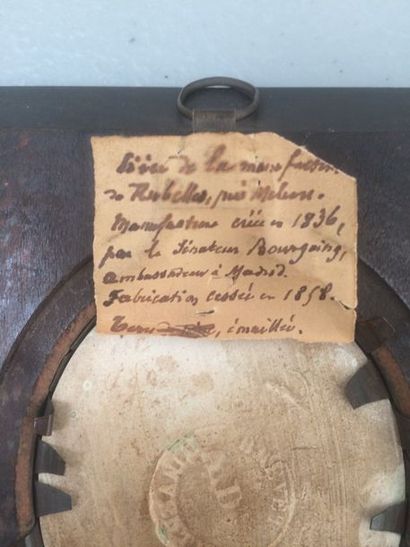 Pièce de la manufacture
de Rubelles, près Melun.
Manufacture créée en 1836,
par le Sénateur Bourgoing,
ambassadeur à Madrid.
Fabrication cessée en 1858.
Terre émaillée.
BREVET